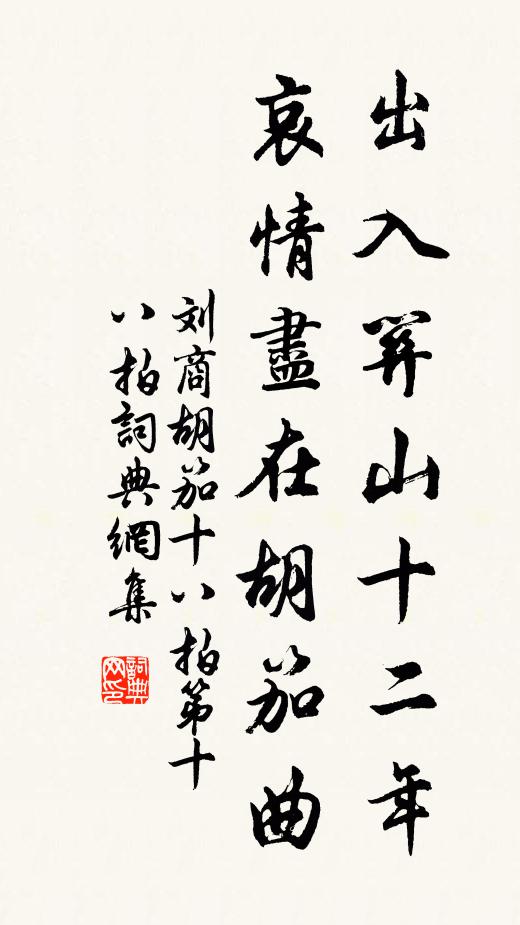 出入関山十二年
哀情盡在胡笳曲
刘商胡笳十八拍第十
八拍詞典網集
詞典
网印